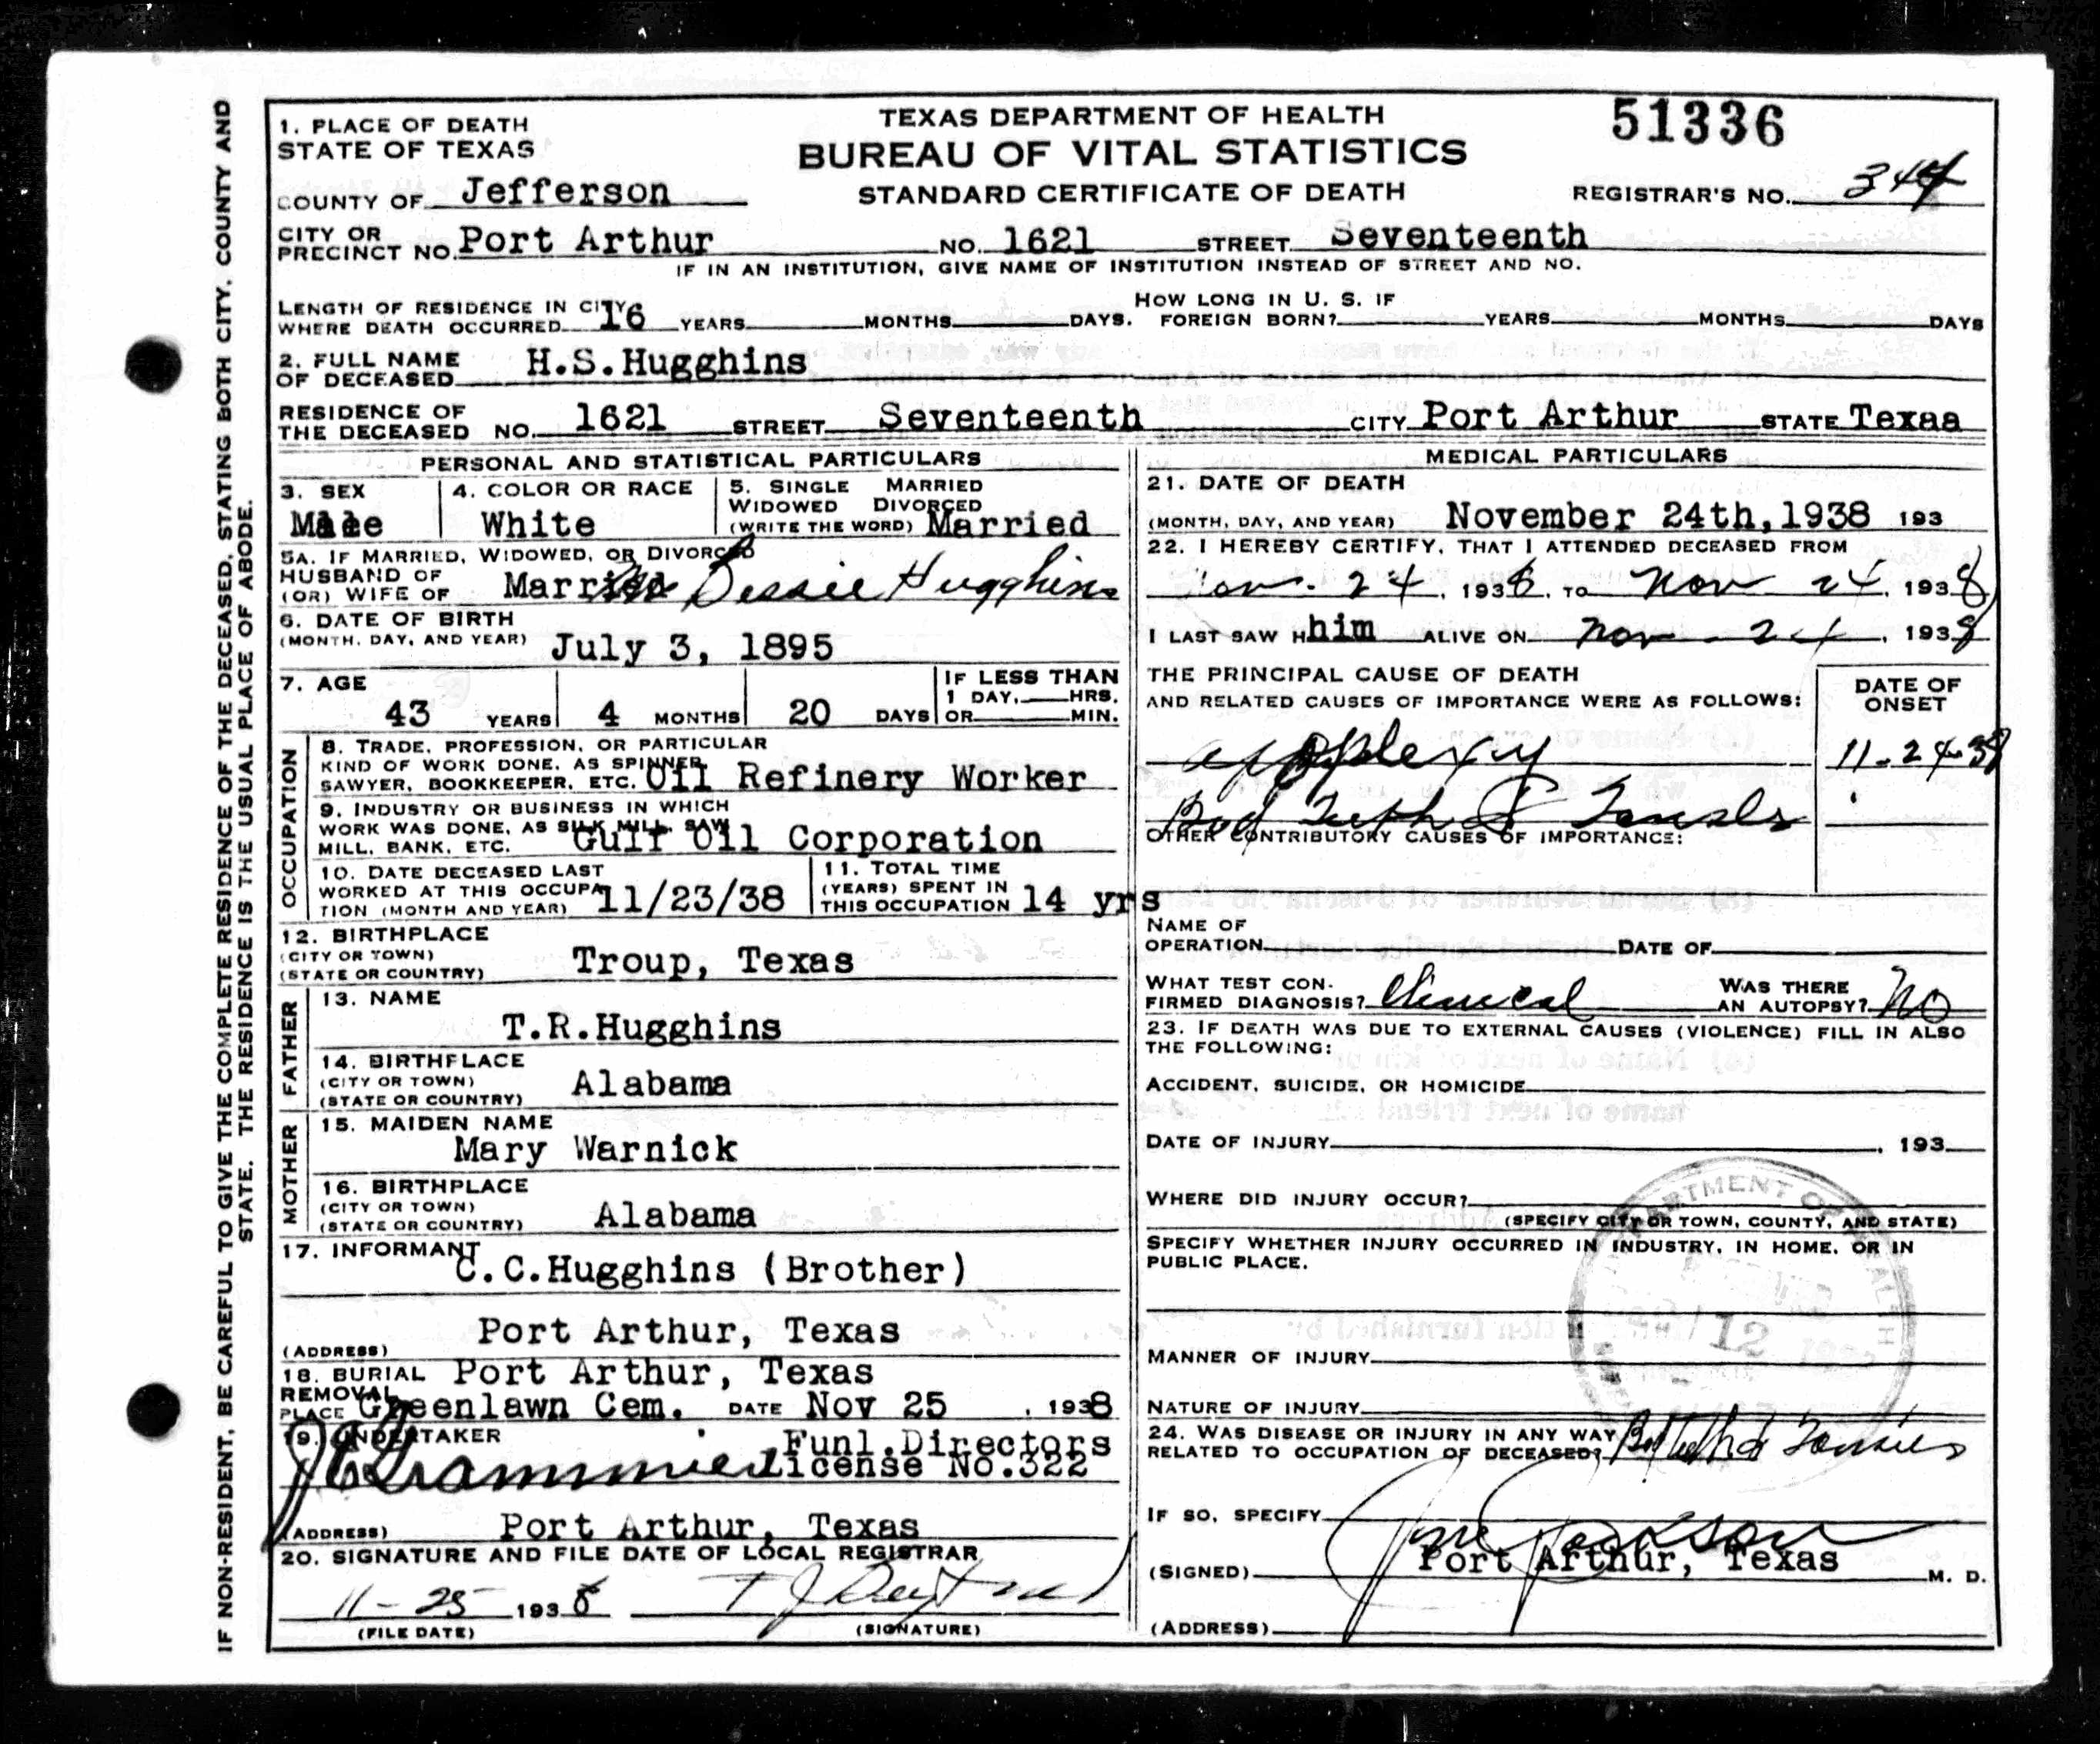 TEXAS DEPARTMENT OF HEALTH
BUREAU OF VITAL STATISTICS
STANDARD CERTIFICATE OF DEATH
51336
REGISTRAR'S NO. 344
1. PLACE OF DEATH
STATE OF TEXAS
COUNTY OF Jefferson
CITY OR
PRECINCT NO. Port Arthur NO. 1621 STREET Seventeenth
IF IN AN INSTITUTION, GIVE NAME OF INSTITUTION INSTEAD OF STREET AND NO.
LENGTH OF RESIDENCE IN CITY
WHERE DEATH OCCURRED 16 YEARS MONTHS DAYS. HOW LONG IN U. S. IF
FOREIGN BORN? YEARS MONTHS DAYS
2. FULL NAME
OF DECEASED H.S.Hugghins
RESIDENCE OF
THE DECEASED NO. 1621 STREET Seventeenth CITY Port Arthur STATE Texaa
PERSONAL AND STATISTICAL PARTICULARS
3. SEX
Male
4. COLOR OR RACE
White
5. SINGLE MARRIED
WIDOWED DIVORCED
(WRITE THE WORD) Married
5A. IF MARRIED, WIDOWED, OR DIVORCED
HUSBAND OF
(OR) WIFE OF Married Mrs Bessie Hugghins
6. DATE OF BIRTH
(MONTH, DAY, AND YEAR) July 3, 1895
7. AGE
43 YEARS 4 MONTHS 20 DAYS
IF LESS THAN
1 DAY, HRS.
OR MIN.
OCCUPATION
8. TRADE, PROFESSION, OR PARTICULAR
KIND OF WORK DONE, AS SPINNER
SAWYER, BOOKKEEPER, ETC. Oil Refinery Worker
9. INDUSTRY OR BUSINESS IN WHICH
WORK WAS DONE, AS SILK MILL, SAW
MILL, BANK, ETC. Gulf Oil Corporation
10. DATE DECEASED LAST
WORKED AT THIS OCCUPA
TION (MONTH AND YEAR) 11/23/38
11. TOTAL TIME
(YEARS) SPENT IN
THIS OCCUPATION 14 yrs
12. BIRTHPLACE
(CITY OR TOWN)
(STATE OR COUNTRY) Troup, Texas
FATHER
13. NAME
T.R.Hugghins
14. BIRTHPLACE
(CITY OR TOWN)
(STATE OR COUNTRY) Alabama
MOTHER
15. MAIDEN NAME
Mary Warnick
16. BIRTHPLACE
(CITY OR TOWN)
(STATE OR COUNTRY) Alabama
17. INFORMANT
C.C.Hugghins (Brother)
(ADDRESS) Port Arthur, Texas
18. BURIAL Port Arthur, Texas
REMOVAL
PLACE Greenlawn Cem. DATE Nov 25, 1938
19. UNDERTAKER Funl.Directors
License No.322
(ADDRESS) Port Arthur, Texas
20. SIGNATURE AND FILE DATE OF LOCAL REGISTRAR
11-25 1938
(FILE DATE) (SIGNATURE)
MEDICAL PARTICULARS
21. DATE OF DEATH
(MONTH, DAY, AND YEAR) November 24th,1938 193
22. I HEREBY CERTIFY, THAT I ATTENDED DECEASED FROM
Nov. 24, 1938, TO Nov 24, 1938
I LAST SAW H him ALIVE ON Nov - 24, 1938
THE PRINCIPAL CAUSE OF DEATH
AND RELATED CAUSES OF IMPORTANCE WERE AS FOLLOWS:
DATE OF
ONSET
apoplexy 11-24-38
Bad Teeth & Tonsils
OTHER CONTRIBUTORY CAUSES OF IMPORTANCE:
NAME OF
OPERATION DATE OF
WHAT TEST CON-
FIRMED DIAGNOSIS? Clinical WAS THERE
AN AUTOPSY? No
23. IF DEATH WAS DUE TO EXTERNAL CAUSES (VIOLENCE) FILL IN ALSO
THE FOLLOWING:
ACCIDENT, SUICIDE, OR HOMICIDE
DATE OF INJURY , 193
WHERE DID INJURY OCCUR?
(SPECIFY CITY OR TOWN, COUNTY, AND STATE)
SPECIFY WHETHER INJURY OCCURRED IN INDUSTRY, IN HOME, OR IN
PUBLIC PLACE.
MANNER OF INJURY
NATURE OF INJURY
24. WAS DISEASE OR INJURY IN ANY WAY
RELATED TO OCCUPATION OF DECEASED? Bad teeth & Tonsils
IF SO, SPECIFY
(SIGNED) Jackson M. D.
Port Arthur, Texas
(ADDRESS)
12
IF NON-RESIDENT, BE CAREFUL TO GIVE THE COMPLETE RESIDENCE OF THE DECEASED, STATING BOTH CITY, COUNTY AND
STATE. THE RESIDENCE IS THE USUAL PLACE OF ABODE.